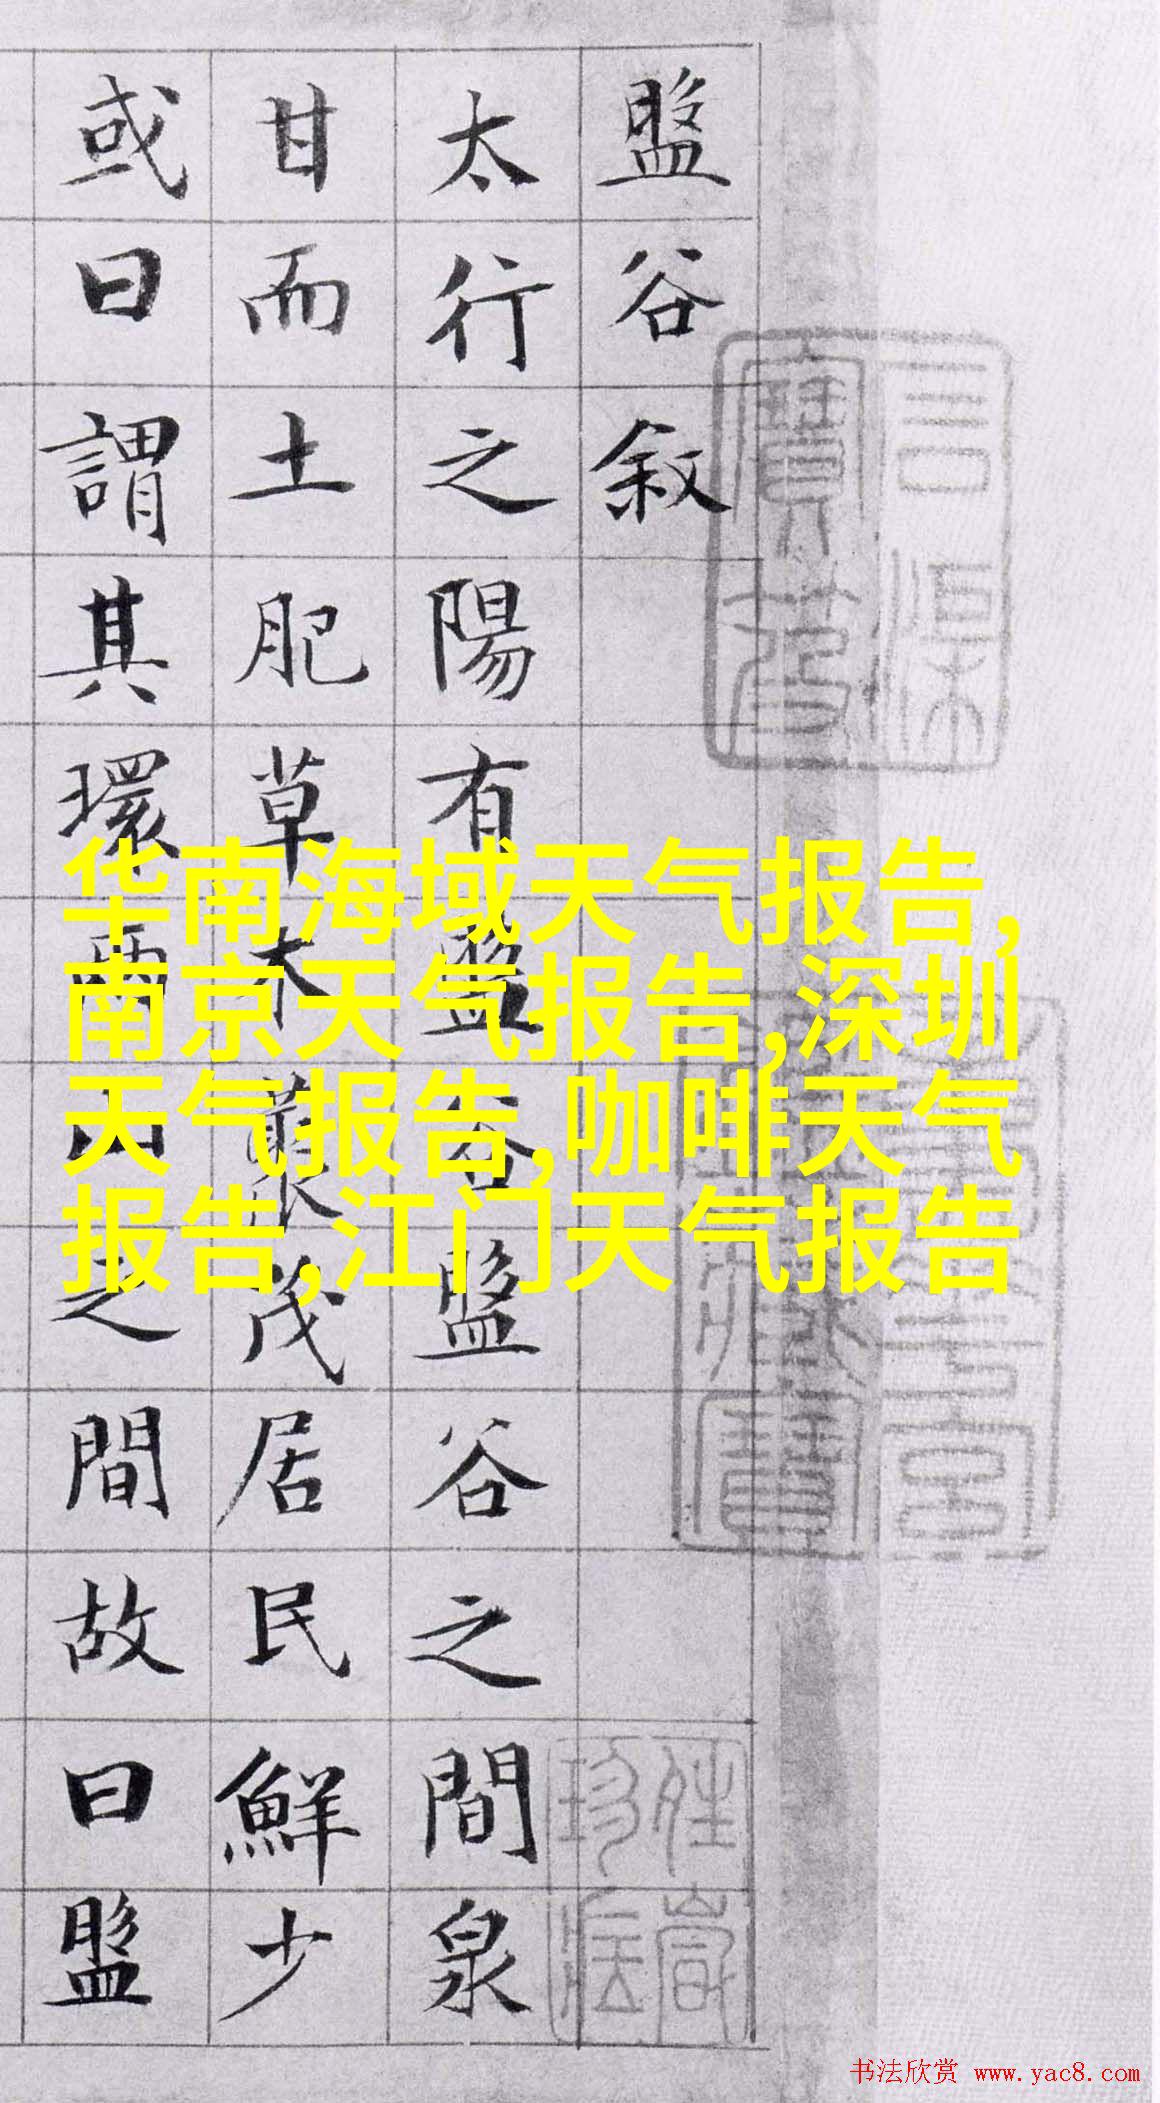 盤谷敘
太行之陽有盤谷盤谷之間泉
甘而土肥草木叢茂居民鮮少
或曰謂其環兩山之間故曰盤
华南海域天气报告,
南京天气报告,深圳
天气报告,咖啡天气
报告,江门天气报告
书法欣赏 www.yac8.com